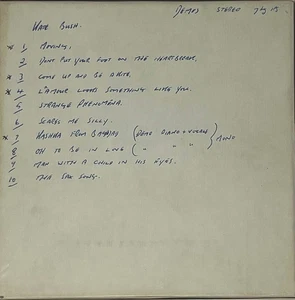 DEMOS STEREO 7½ IPS
KATE BUSH.
* 1 MOVING,
2 DONT PUT YOUR FOOT ON THE HEARTBRAKE,
* 3 COME UP AND BE A KITE,
* 4 L'AMOUR LOOKS SOMETHING LIKE YOU.
5 STRANGE PHENOMENA.
6 SCARES ME SILLY.
* 7 KASHKA FROM BAGHDAD (DEMO PIANO & VOCALS) MONO
8 OH TO BE IN LOVE ( " " " )
9 MAN WITH A CHILD IN HIS EYES.
10 THE SAX SONG.